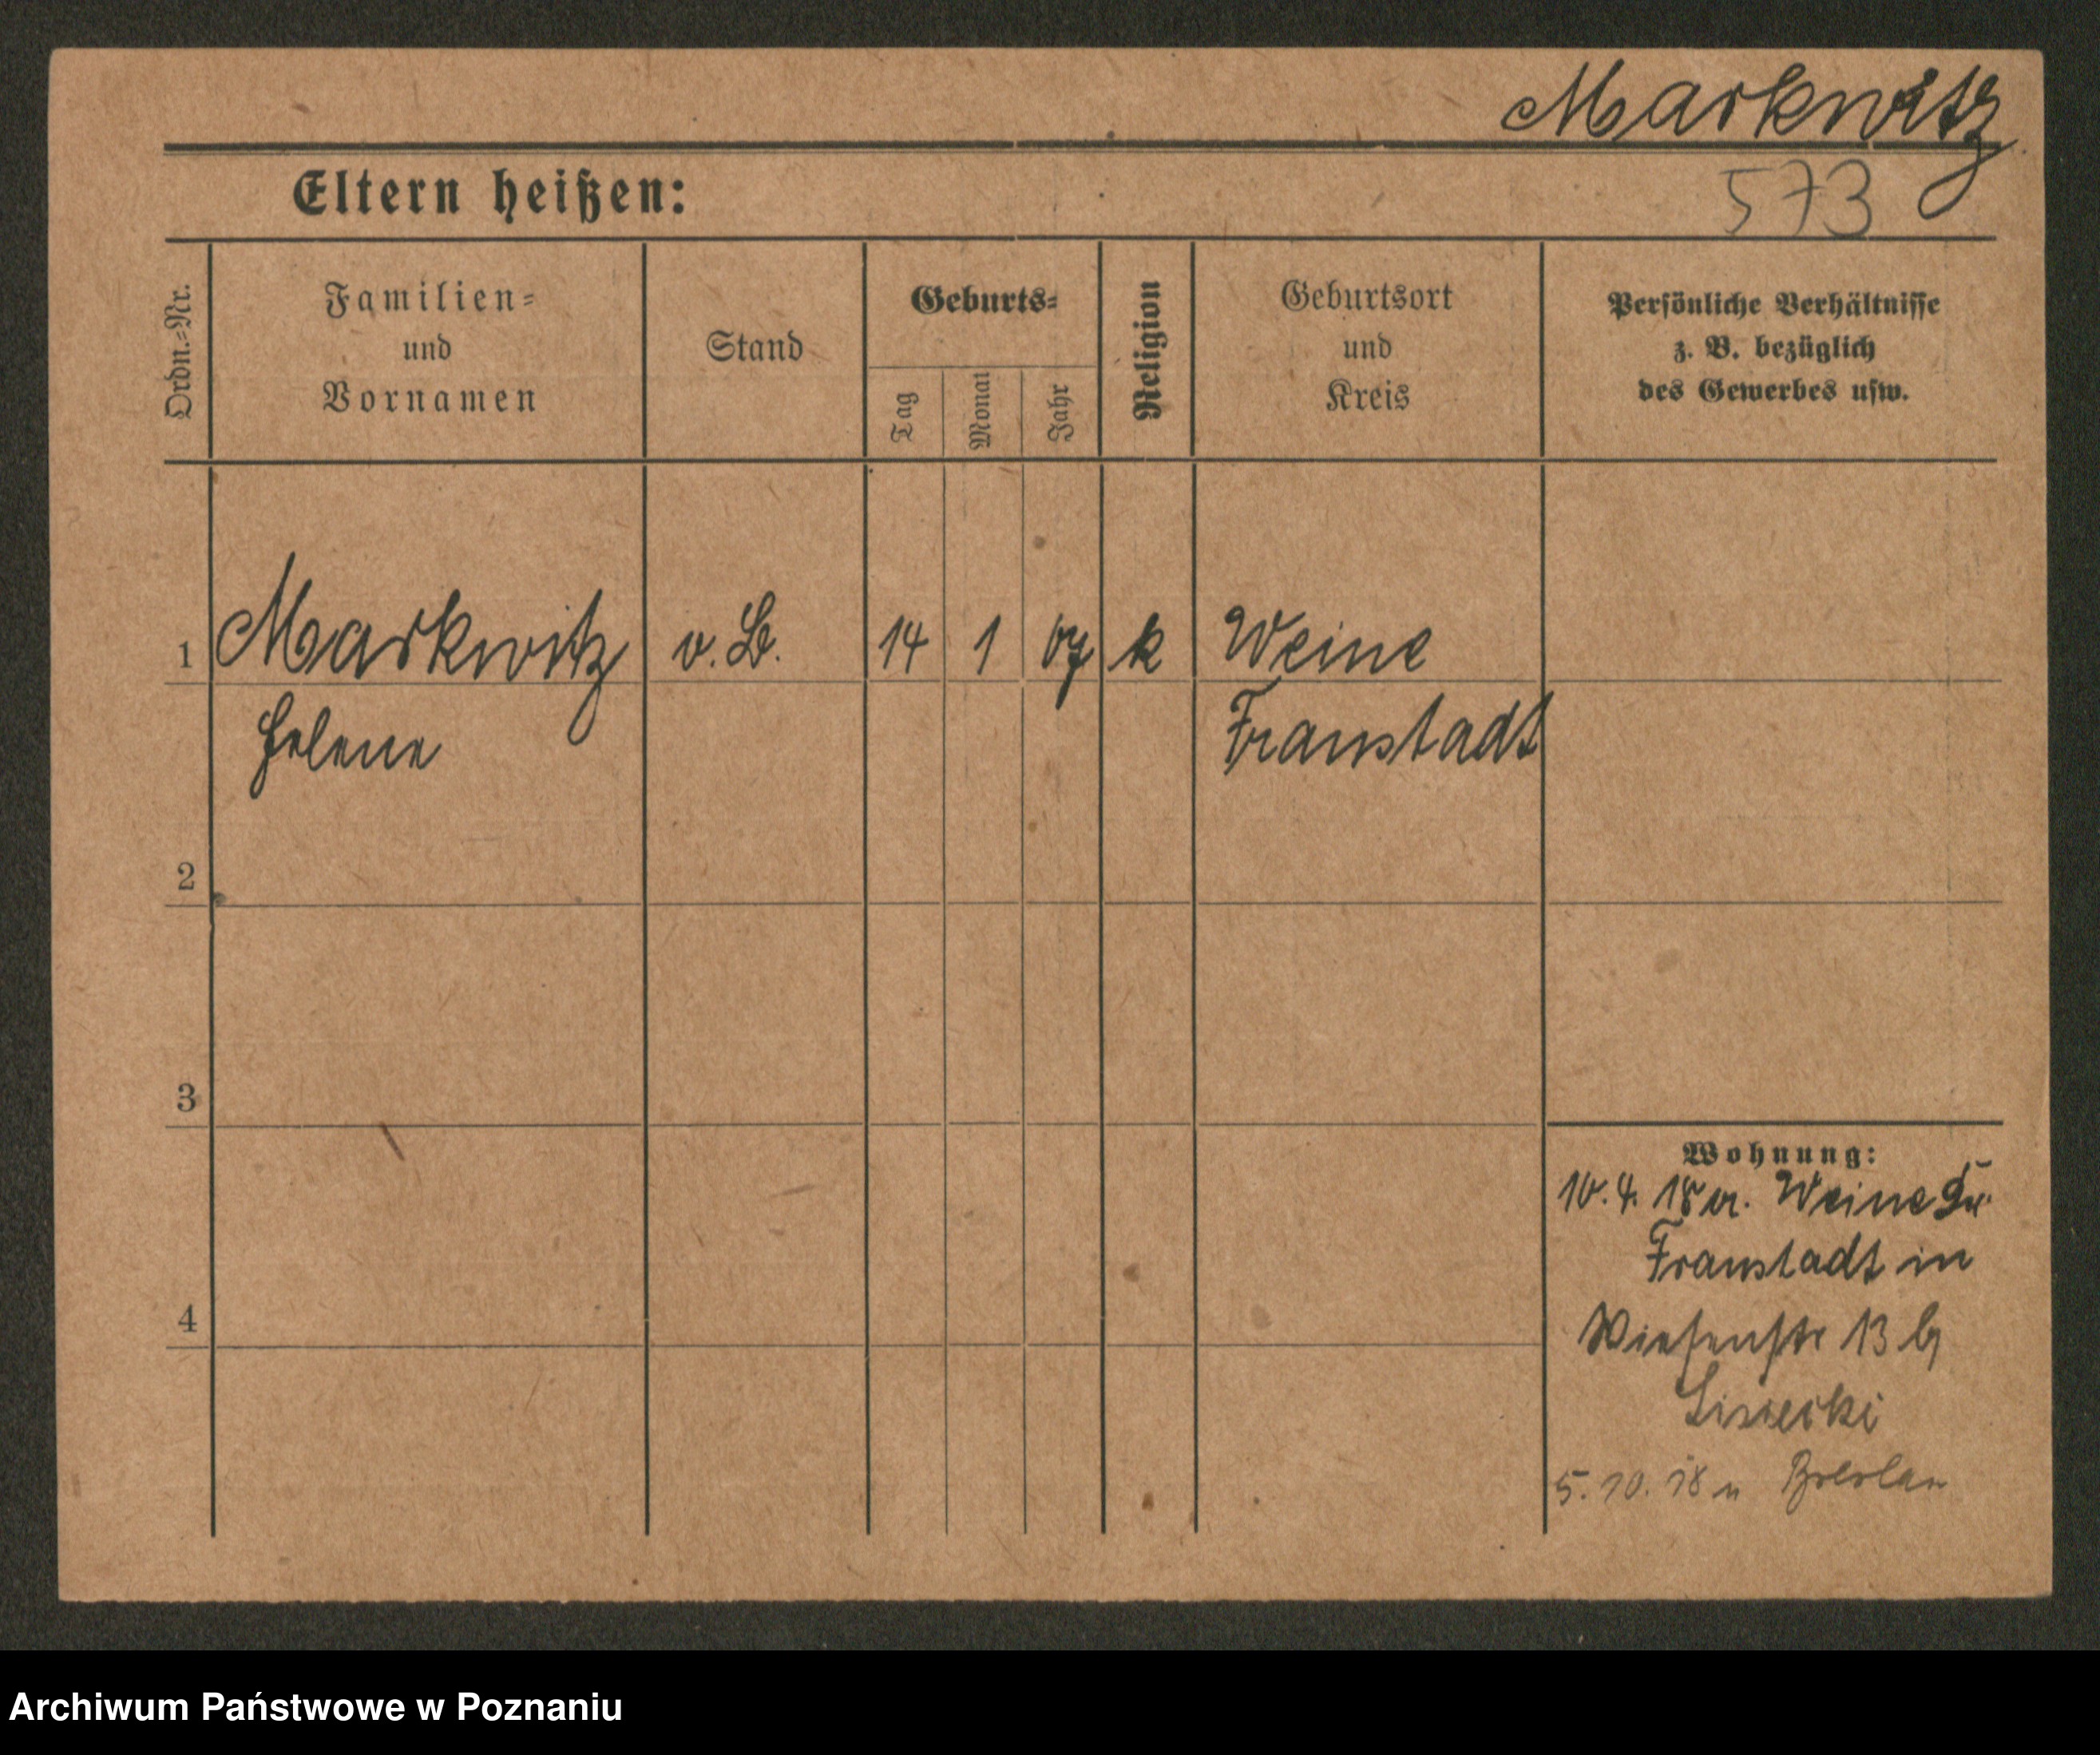 Markwitz
573
Eltern heißen:
Ordn.-Nr.
Familien-
und
Vornamen
Stand
Geburts-
Tag
Monat
Jahr
Religion
Geburtsort
und
Kreis
Persönliche Verhältnisse
z. B. bezüglich
des Gewerbes usw.
1 Markwitz v. B. 14 1 07 k Weine
Helene Fraustadt
2
3
Wohnung:
10.4.18 Weine Kr.
Fraustadt in
4
Wiesenstr 13 b/
Lisiecki
5.10.18 n Breslau
Archiwum Państwowe w Poznaniu